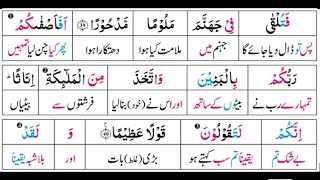 فَتُلْقٰى فِیْ جَهَنَّمَ مَلُوْمًا مَّدْحُوْرًا ۝۳۹ اَفَاَصْفٰىكُمْ
پس تو ڈال دیا جائے گا جہنم میں ملامت کیا ہوا دھتکارا ہوا پھر کیا چن لیا تمہیں
رَبُّكُمْ بِالْبَنِیْنَ وَاتَّخَذَ مِنَ الْمَلٰٓىِٕكَةِ اِنَاثًا ؕ
تمہارے رب نے بیٹوں کے ساتھ اور اس نے (خود) بنا لیا فرشتوں سے بیٹیاں
اِنَّكُمْ لَتَقُوْلُوْنَ قَوْلًا عَظِیْمًا ۝۴۰ وَ لَقَدْ
بے شک تم یقیناً تم سب کہتے ہو بڑی (غلط) بات اور بلاشبہ یقیناً